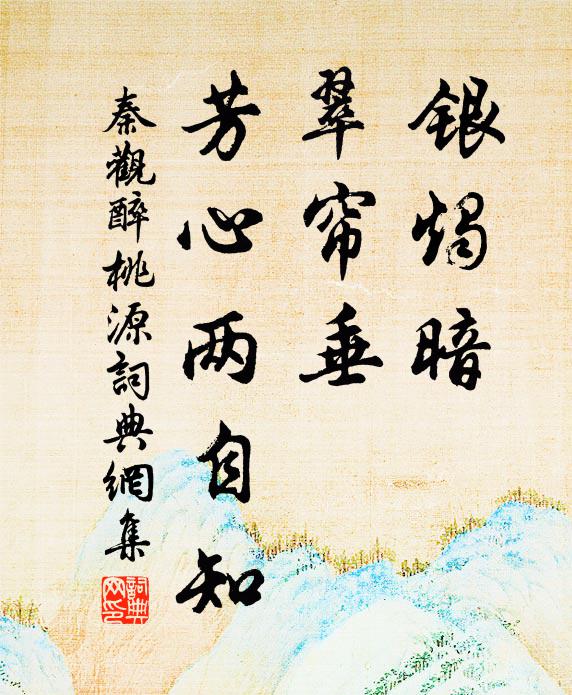 银烛暗
翠帘垂
芳心两自知
秦觀醉桃源詞典網集
詞典
网印